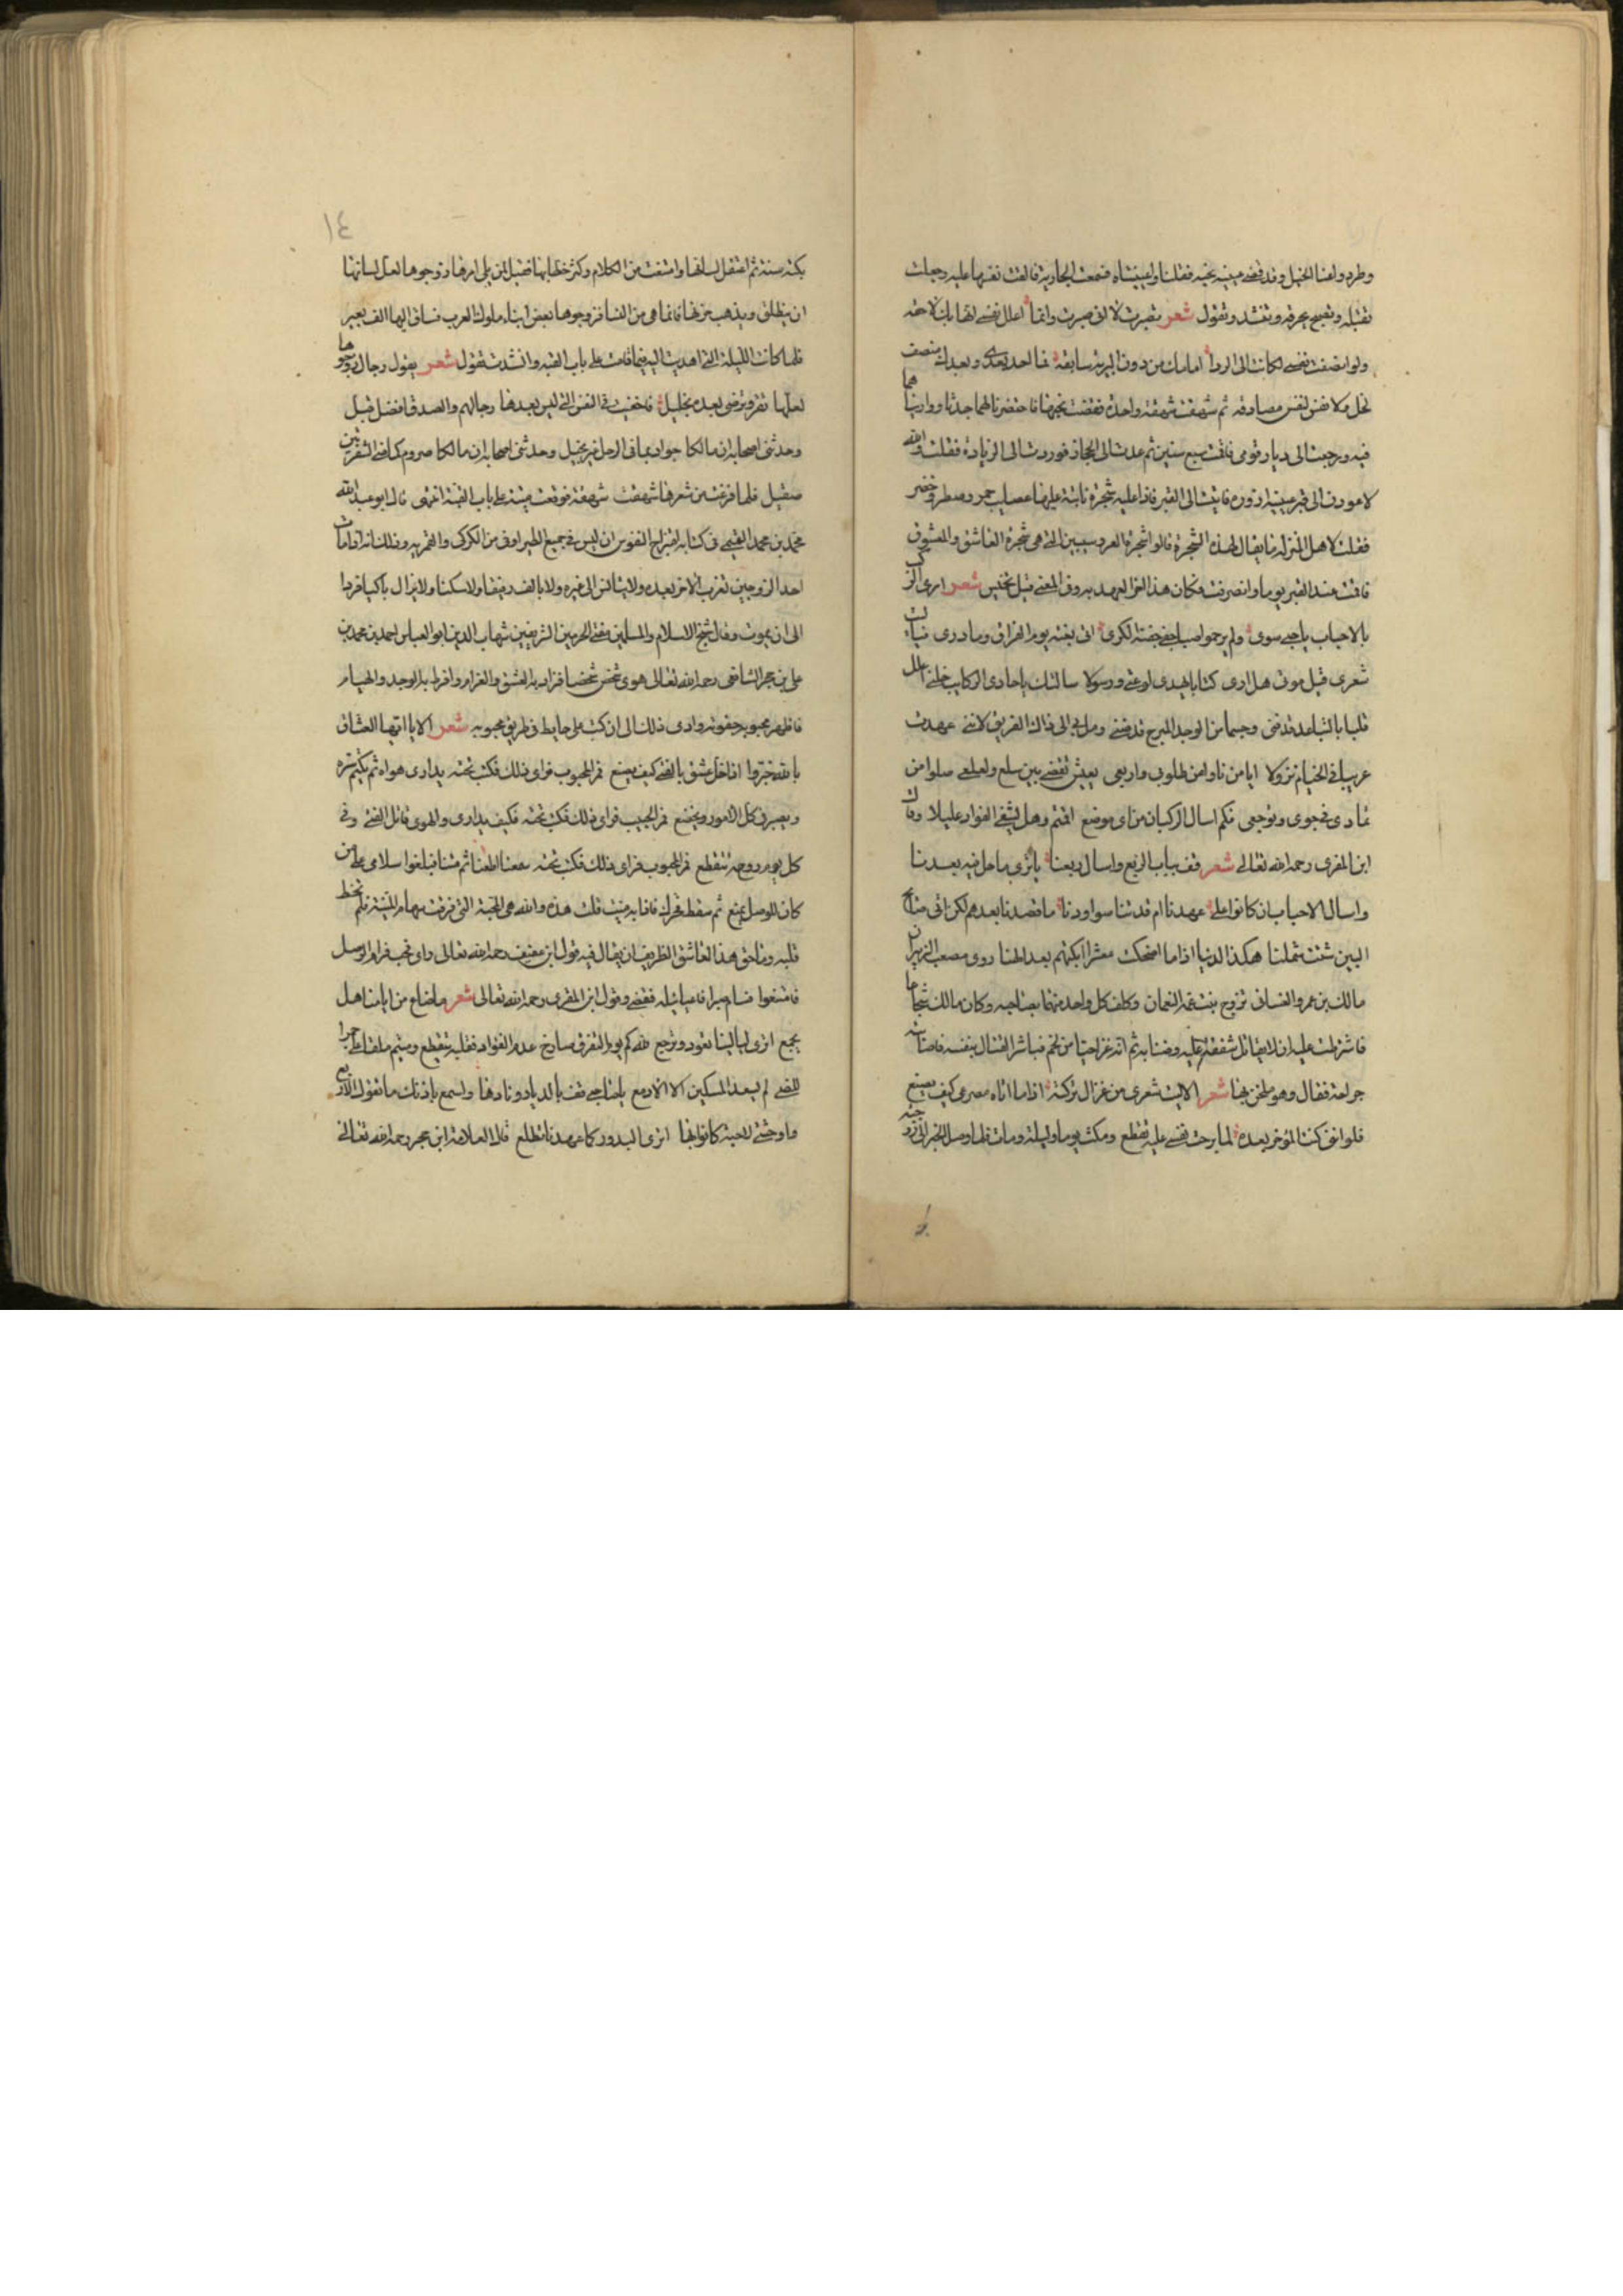 وطردوا لهنا الخيل وقد قضى عيينه نحبه فقلنا واعييناه فسمعت الجارية فالقت نفسها عليه وجعلت
تقبله وتصيح بحرقه وتنشد وتقول شعر تصبرت لا انى صبرت وانما اعلل نفسى انها بك لاحقه
ولو انصفت نفسى لكانت الى الردا امامك من دون البرية سابقه فما احد بعدى وبعدك منصف
لخل ولا نفس لنفس مصادقه ثم شهقت شهقة واحدة فقضت نحبها فاحتفرنا لهما جدثا وواريناهما
فيه ورجعت الى ديار قومى فاقمت سبع سنين ثم عدت الى الحجاز فوردت الى الزيارة فقلت والله
لاعودن الى قبر عيينه ازوره فاتيت الى القبر فاذا عليه شجرة نابتة عليها عصايب حمر وصفر وخضر
فقلت لاهل المنزله ما يقال لهذه الشجرة قالوا شجرة العروسين التى هى شجرة العاشق والمعشوق
فاقمت عند القبر يوما وانصرفت فكان هذا اخر العهد به وفى المعنى قيل تخميس شعر ارى الركب
بالاحباب يا حى سوى ولم يرحموا صبا جفى جفنه الكرى اتى بغته يوم الفراق وما درى فياليت
شعرى قبل موتى هل ارى كتابا يهدى لوعتى ورسولا سالتك يا حادى الركايب خلنى اعلل
قلبا بالتباعد قد فنى وجسما من الوجد المبرح قد ضنى ومل بى الى ذاك الفريق لاننى عهدت
عريبا فى الخيام نزولا ايا من ناوا من طلوبى واربعى بعيش تقضى بين سلع ولعلع صلوا من
تمادى فى جوى وتوجعى فكم اسال الركبان من اى موضع اقمتم وهل يشفى الفواد عليلا وقال
ابن المقرى رحمه الله تعالى شعر قف بباب الربع واسال ربعنا يا ترى ما حل فيه بعدنا
واسال الاحباب ان كانوا على عهدنا ام قد تناسوا ودنا ما قصدنا بعدهم لكن اتى مناح
البين شتت شملنا هكذا الدنيا اذا ما اضحكت معشرا ابكتهم بعد الهنا روى مصعب الزبيرى ان
مالك بن عمرو الغسانى تزوج بنت عمه النعمان وكلف كل واحد منهما بصاحبه وكان مالك شجاعا
فاشترطت عليه ان لا يقاتل شفقة عليه وضنا به ثم انه غزا حيا من لخم فباشر القتال بنفسه فاصابته
جراحة فقال وهو مثخن بها شعر الا ليت شعرى عن غزال تركته اذا ما اتاه مصرعى كيف يصنع
فلو اننى كنت المؤخر بعده لما برحت نفسى عليه تقطع ومكث يوما وليلة ومات فلما وصل الخبر الى زوجته
١٤
بكته سنة ثم اعتقل لسانها وامتنعت من الكلام وكثر خطابها فقيل لمن يلى امرها زوجوها لعل لسانها
ان ينطلق ويذهب حزنها فانما هى من النسا فزوجوها بعض ابناء ملوك العرب فساق اليها الف بعير
فلما كانت الليلة التى اهديت اليه فيها قامت على باب القبه وانشدت تقول شعر يقول رجال زوجوها
لعلها تقر وترضى بعده بخليل فاخفيت فى النفس التى ليس بعدها رجالهم والصدق افضل قيل
وحدثنى اصحابه ان مالكا جواد بما فى الرحل غير بخيل وحدثنى اصحابه ان مالكا صروم كماضى الشفرتين
صقيل فلما فرغت من شعرها شهقت شهقة فوقعت ميته على باب القبة انتهى قال ابو عبد الله
محمد بن محمد القيسى فى كتابه افراح النفوس ان ليس فى جميع الطير اوفى من الكركى والقمريه وذلك انه اذا مات
احد الزوجين تغرب الاخر بعده ولا يتانس الى غيره ولا يالف رفيقا ولا سكنا ولا يزال باكيا فردا
الى ان يموت وقال شيخ الاسلام والمسلمين مفتى الحرمين الشريفين شهاب الدين ابو العباس احمد بن محمد بن
على بن حجر الشافعى رحمه الله تعالى هوى شخص شخصا فزاد به العشق والغرام وافرط به الوجد والهيام
فاظهر محبوبه جفوته وادى ذلك الى ان كتب على حايط فى طريق محبوبه شعر الا يا ايها العشاق
بالله خبروا اذا حل عشق بالفتى كيف يصنع فمر المحبوب فراى ذلك فكتب تحته يدارى هواه ثم يكتم سره
ويصبر فى كل الامور ويخضع فمر الحبيب فراى ذلك فكتب تحته فكيف يدارى والهوى قاتل الفتى وفى
كل يوم روحه تتقطع فمر المحبوب فراى ذلك فكتب تحته سمعنا اطعنا ثم متنا فبلغوا سلامى على من
كان للوصل يمنع ثم سقط فحركه فاذا به ميت قلت هذه والله هى المحبة التى فرقت سهام المنية فلم تخط
قلبه وما حق هذا العاشق الظريف ان يقال فيه قول ابن عفيف رحمه الله تعالى راى فحب فرام الوصل
فامتنعوا فسام صبرا فاعيا نيله فقضى وقول ابن المقرى رحمه الله تعالى شعر ما ضاع من ايامنا هل
يجمع اترى ليالينا تعود وترجع لله كم يوم التفرق صارخ عدم الفواد فقلبه يتقطع ومتيم ملقا على جمر
الغضى لم يسعد المسكين الا الادمع يا صاحبى قف بالديار ونادها واسمع باذنك ما تقول الاربع
وا وحشتى لاحبة كانوا بها اترى البدور كما عهدنا تطلع قال العلامة ابن حجر رحمه الله تعالى